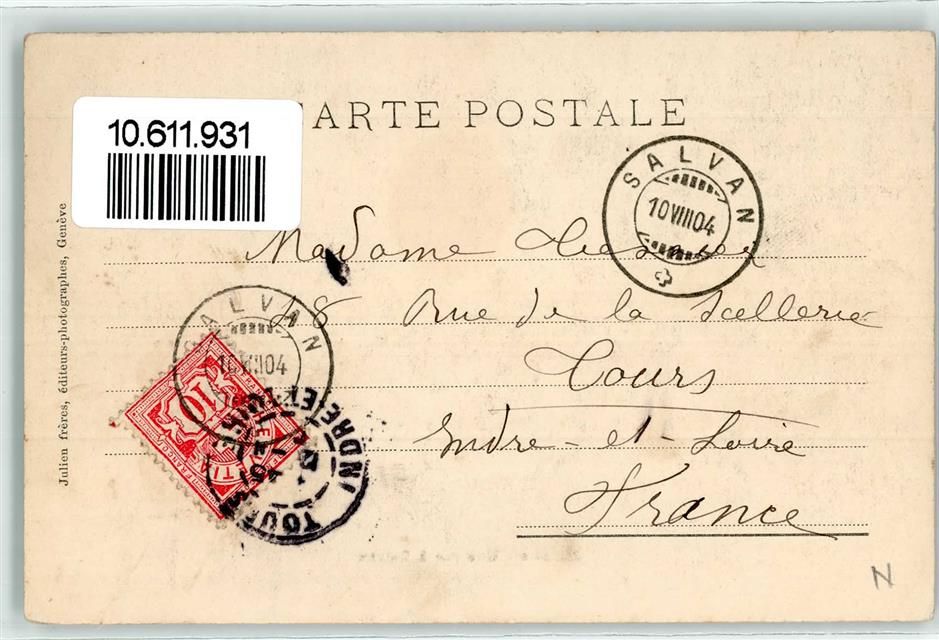 10.611.931
CARTE POSTALE
Julien frères, éditeurs-photographes, Genève
SALVAN
10 VIII 04
Madame
28 Rue de la Scellerie
Tours
Indre-et-Loire
France
SALVAN
10 VIII 04
10
TOURS
INDRE ET
N